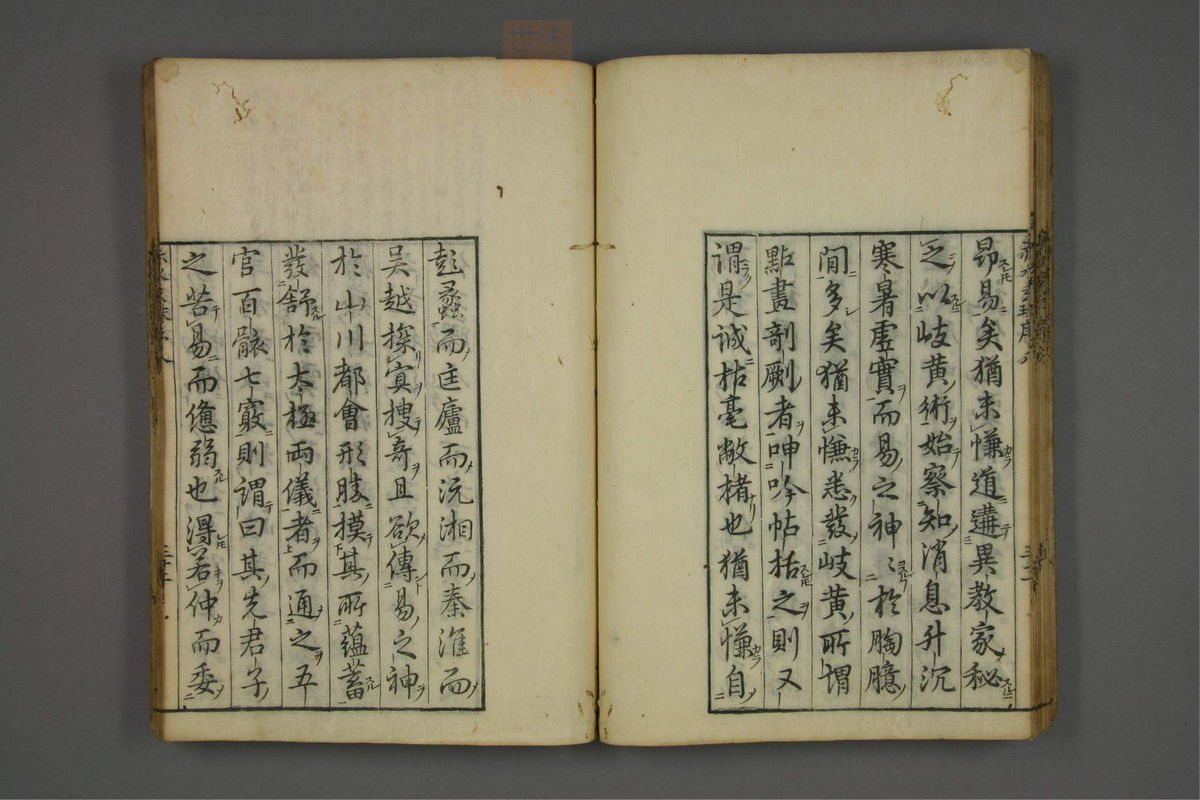 昂易矣猶未慊道遘異教家秘
之以岐黄術始察知消息升沉
寒暑虚實而易之神〻於胸臆
間多矣猶未慊悉發岐黄所謂
點畫剖劂者呻吟帖括之則又
謂是誠枯毫敝楮也猶未慊自
彭蠡而匡廬而沅湘而秦淮而
吳越探寘搜竒且欲傳易之神
於山川都會形勝摸其所蘊蓄
發舒於太極两儀者而通之五
官百骸七竅則謂曰其先君子
之苦易而憊弱也淂若仲而委